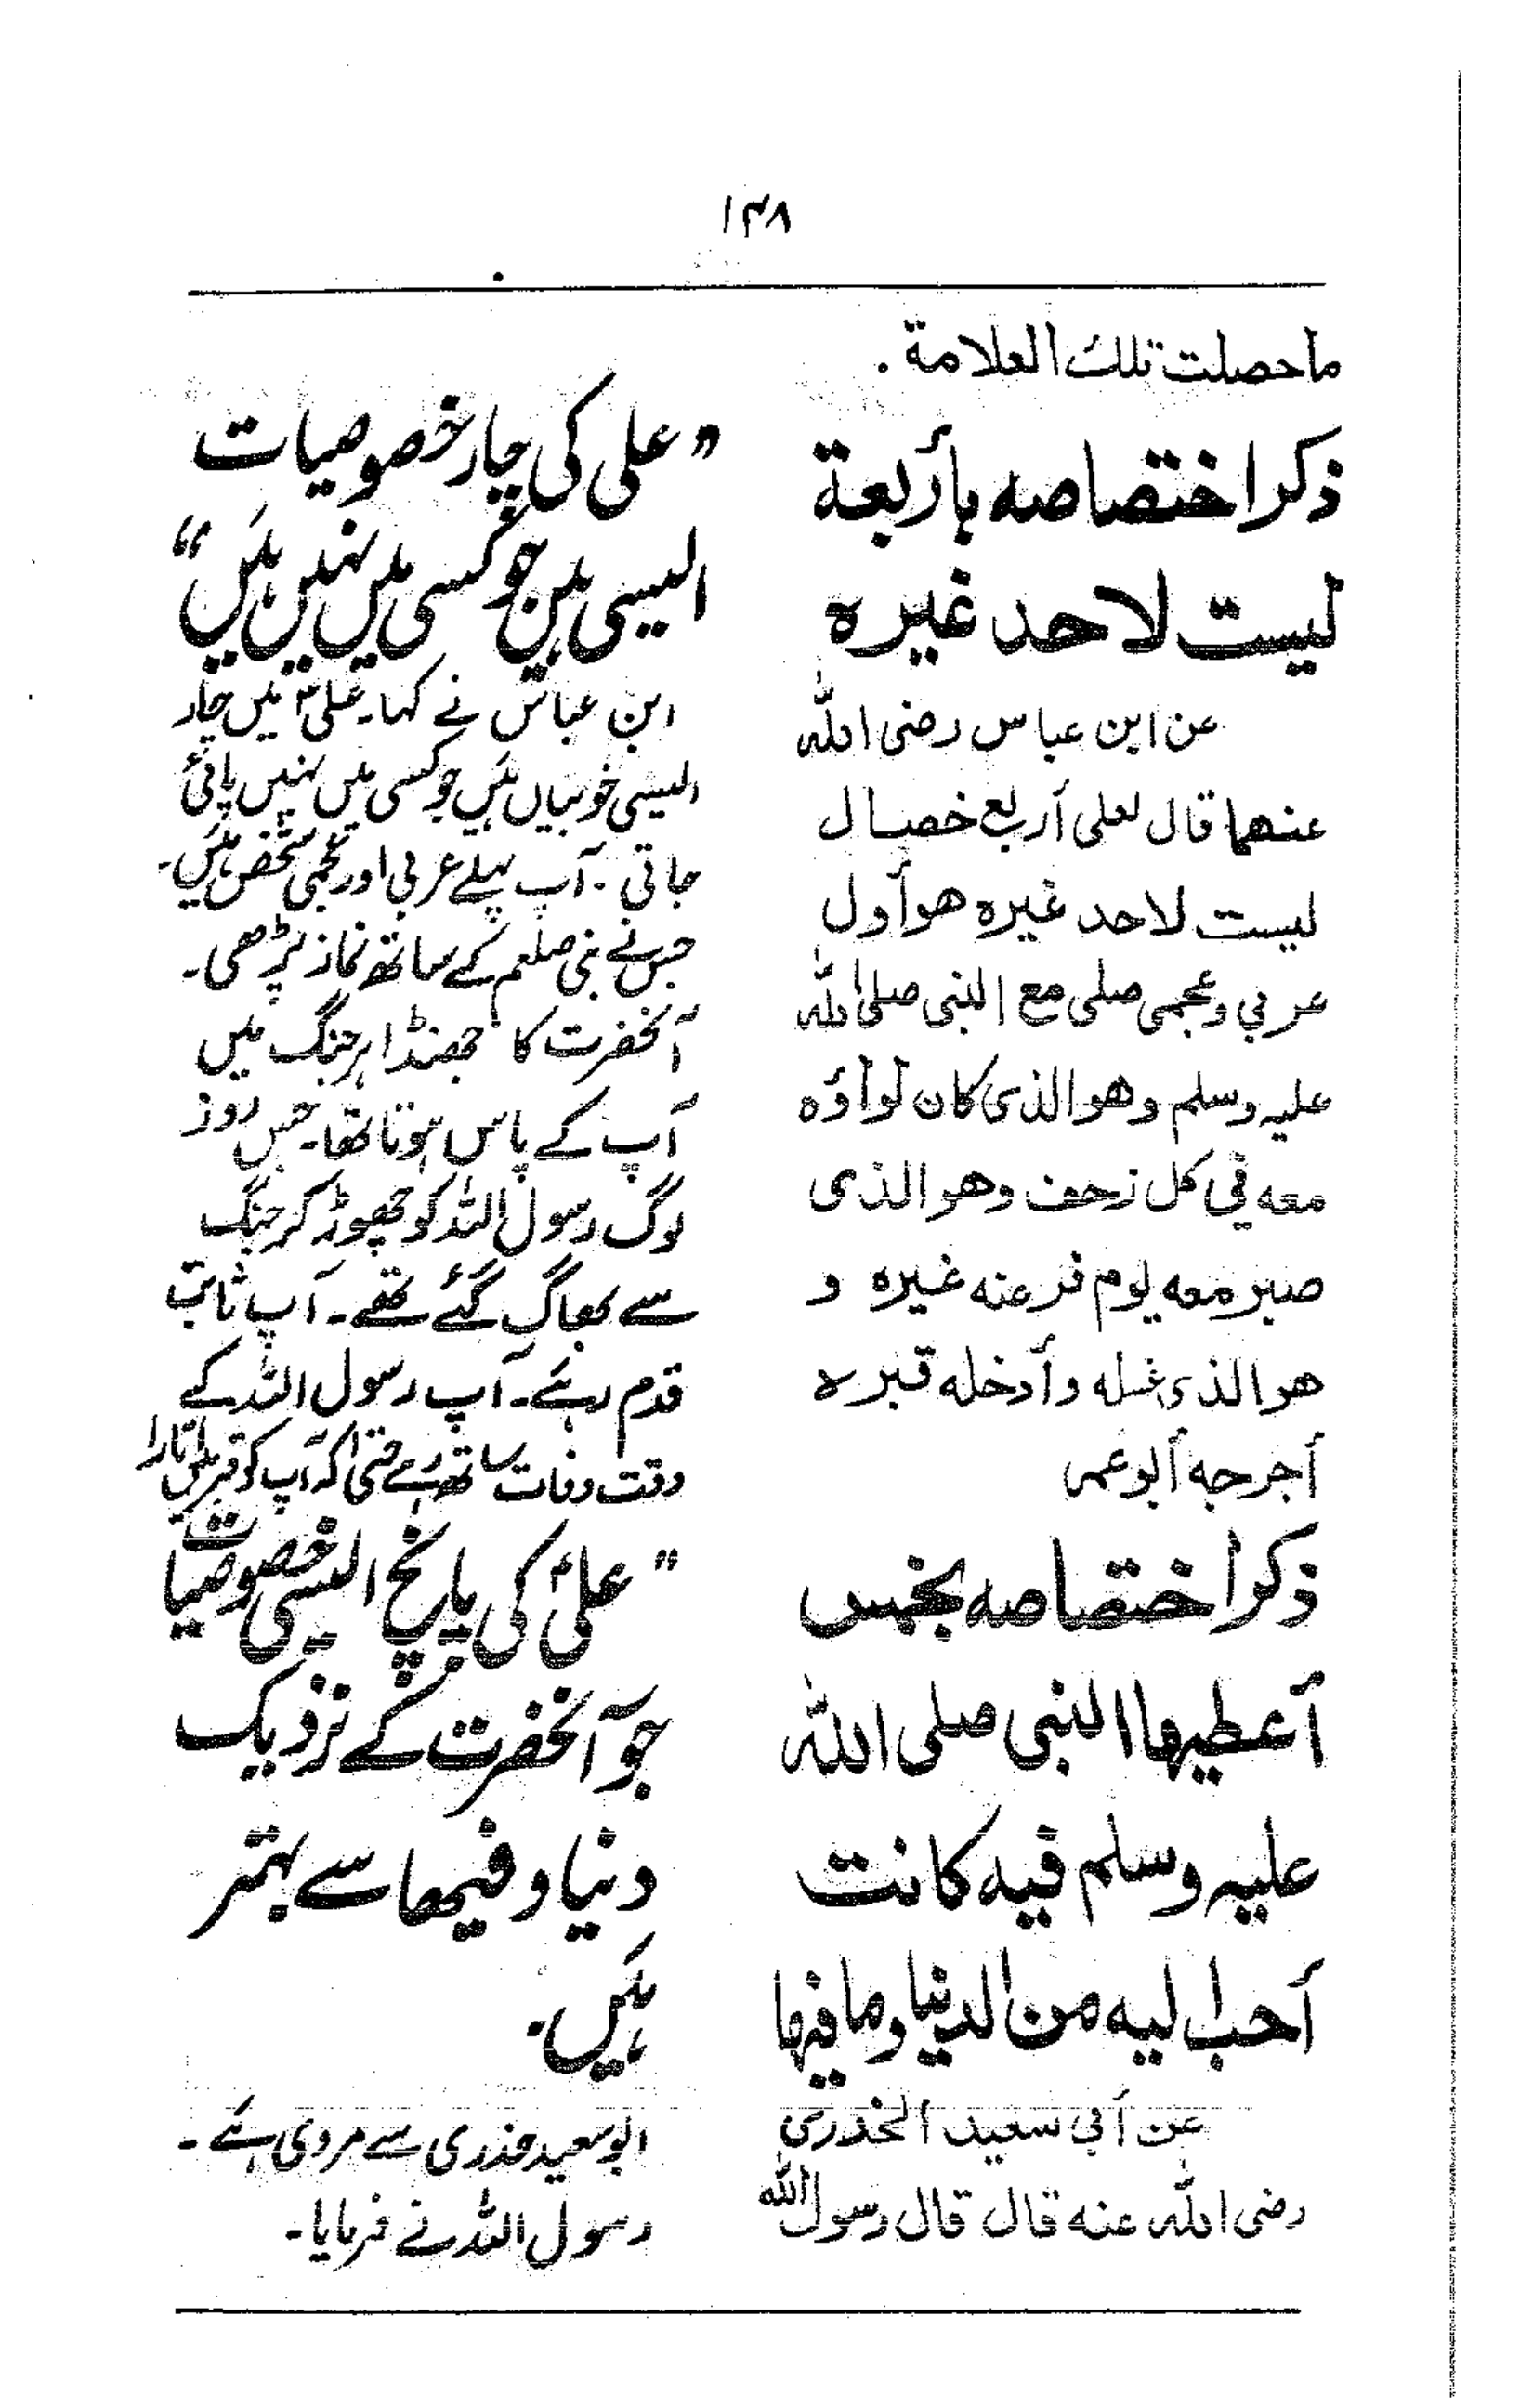 ۱۴۸
ما حصلت تلك العلامة .
ذكر اختصاصه بأربعة
ليست لاحد غيره
عن ابن عباس رضى الله
عنهما قال لعلى أربع خصال
ليست لاحد غيره هو أول
عربي وعجمى صلى مع النبى صلى الله
عليه وسلم وهو الذى كان لوآؤه
معه في كل زحف وهو الذى
صبر معه يوم فر عنه غيره و
هو الذى غسله وأدخله قبره
أجرجه أبو عمر
ذكر اختصاصه بخمس
أعطيها النبى صلى الله
عليه وسلم فيه كانت
أحب إليه من الدنيا وما فيها
عن أبي سعيد الخدرى
رضى الله عنه قال قال رسول الله
"علی کی چار خصوصیات
ایسی ہیں جو کسی میں نہیں ہیں"
ابن عباس نے کہا۔ علیؑ میں چار
ایسی خوبیاں ہیں جو کسی میں نہیں پائی
جاتی ۔ آپ پہلے عربی اور عجمی شخص ہیں۔
جس نے نبی صلعم کے ساتھ نماز پڑھی۔
آنحضرت کا جھنڈا ہر جنگ میں
آپ کے پاس ہوتا تھا۔ جس روز
لوگ رسول اللہ کو چھوڑ کر جنگ
سے بھاگ گئے تھے۔ آپ ثابت
قدم رہے۔ آپ رسول اللہ کے
وقت وفات ساتھ رہے حتی کہ آپ کو قبر میں اتارا
"علیؑ کی پانچ ایسی خصوصیات
جو آنحضرت کے نزدیک
دنیا و فیھا سے بہتر
ہیں۔
ابوسعید خذری سے مروی ہے ۔
رسول اللہ نے فرمایا۔